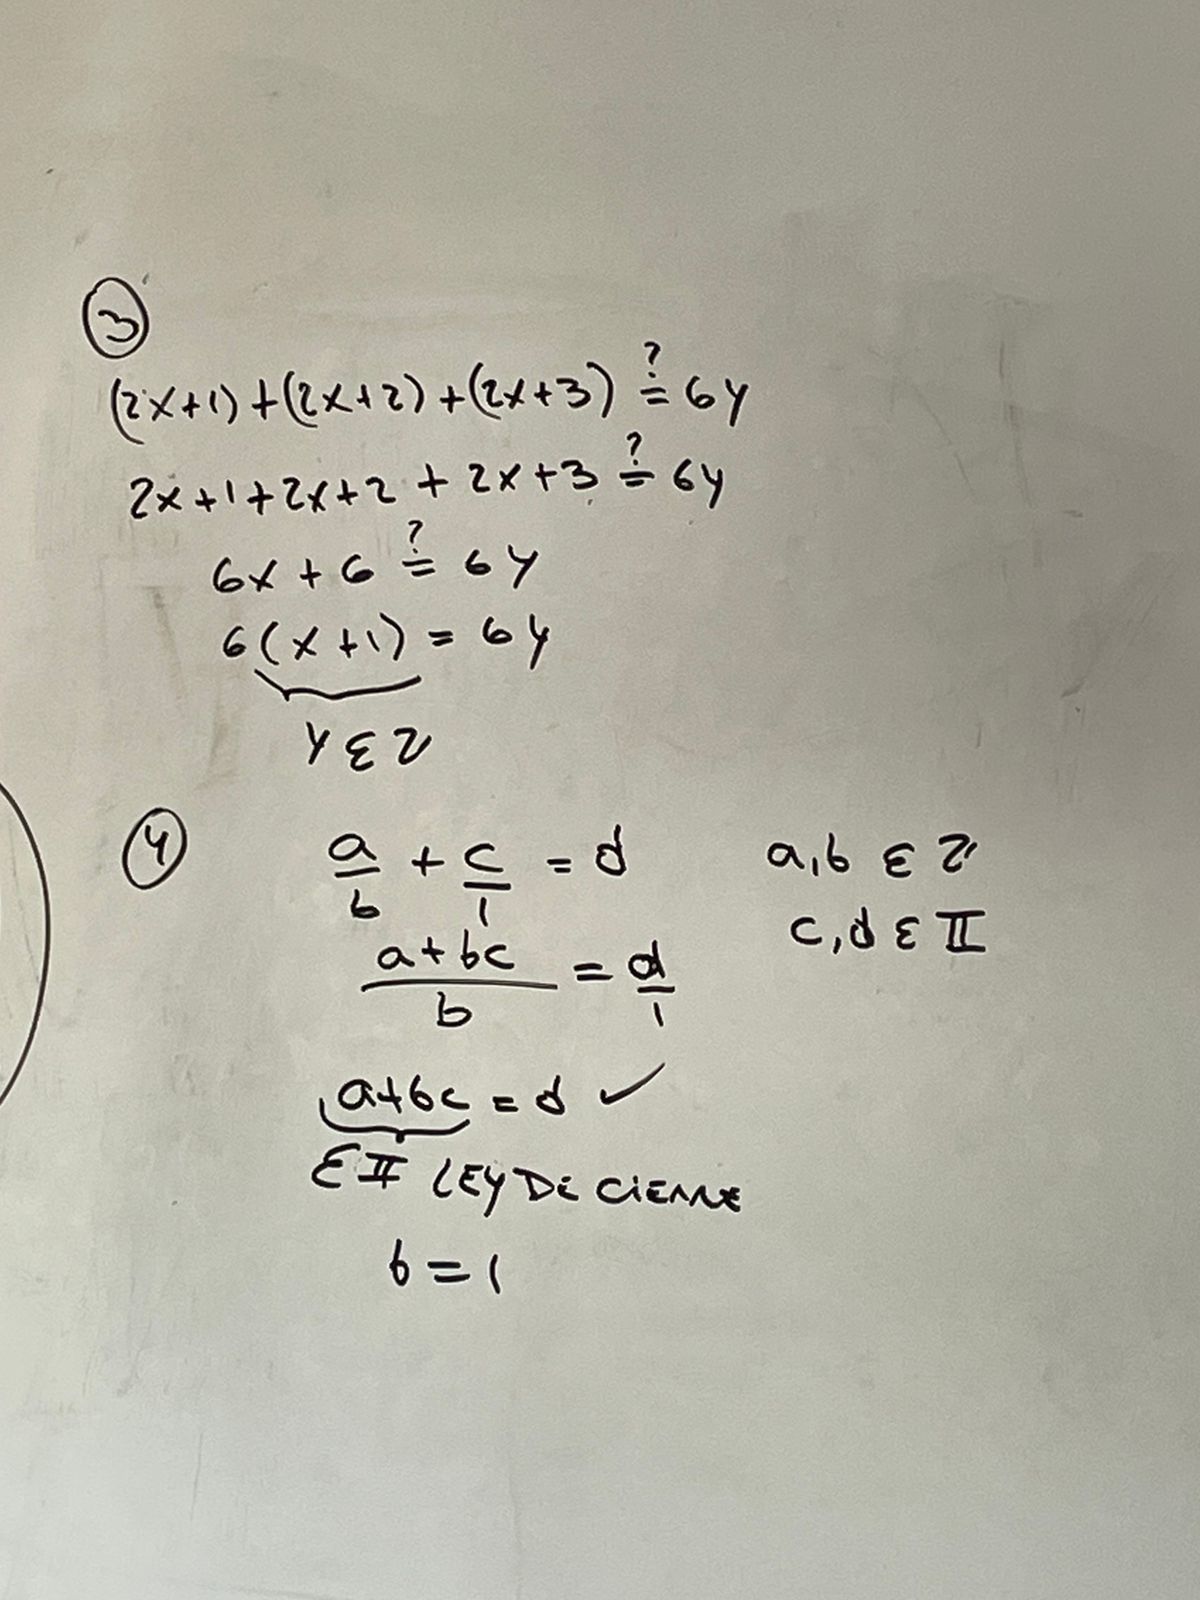 ③
(2x+1)+(2x+2)+(2x+3) ≟ 6y
2x+1+2x+2+2x+3 ≟ 6y
6x+6 ≟ 6y
6(x+1) = 6y
y ε Z
④ a/b + c/1 = d a,b ε Z
c,d ε II
(a+bc)/b = d/1
a+bc = d ✓
ε II LEY DE CIERRE
b = 1